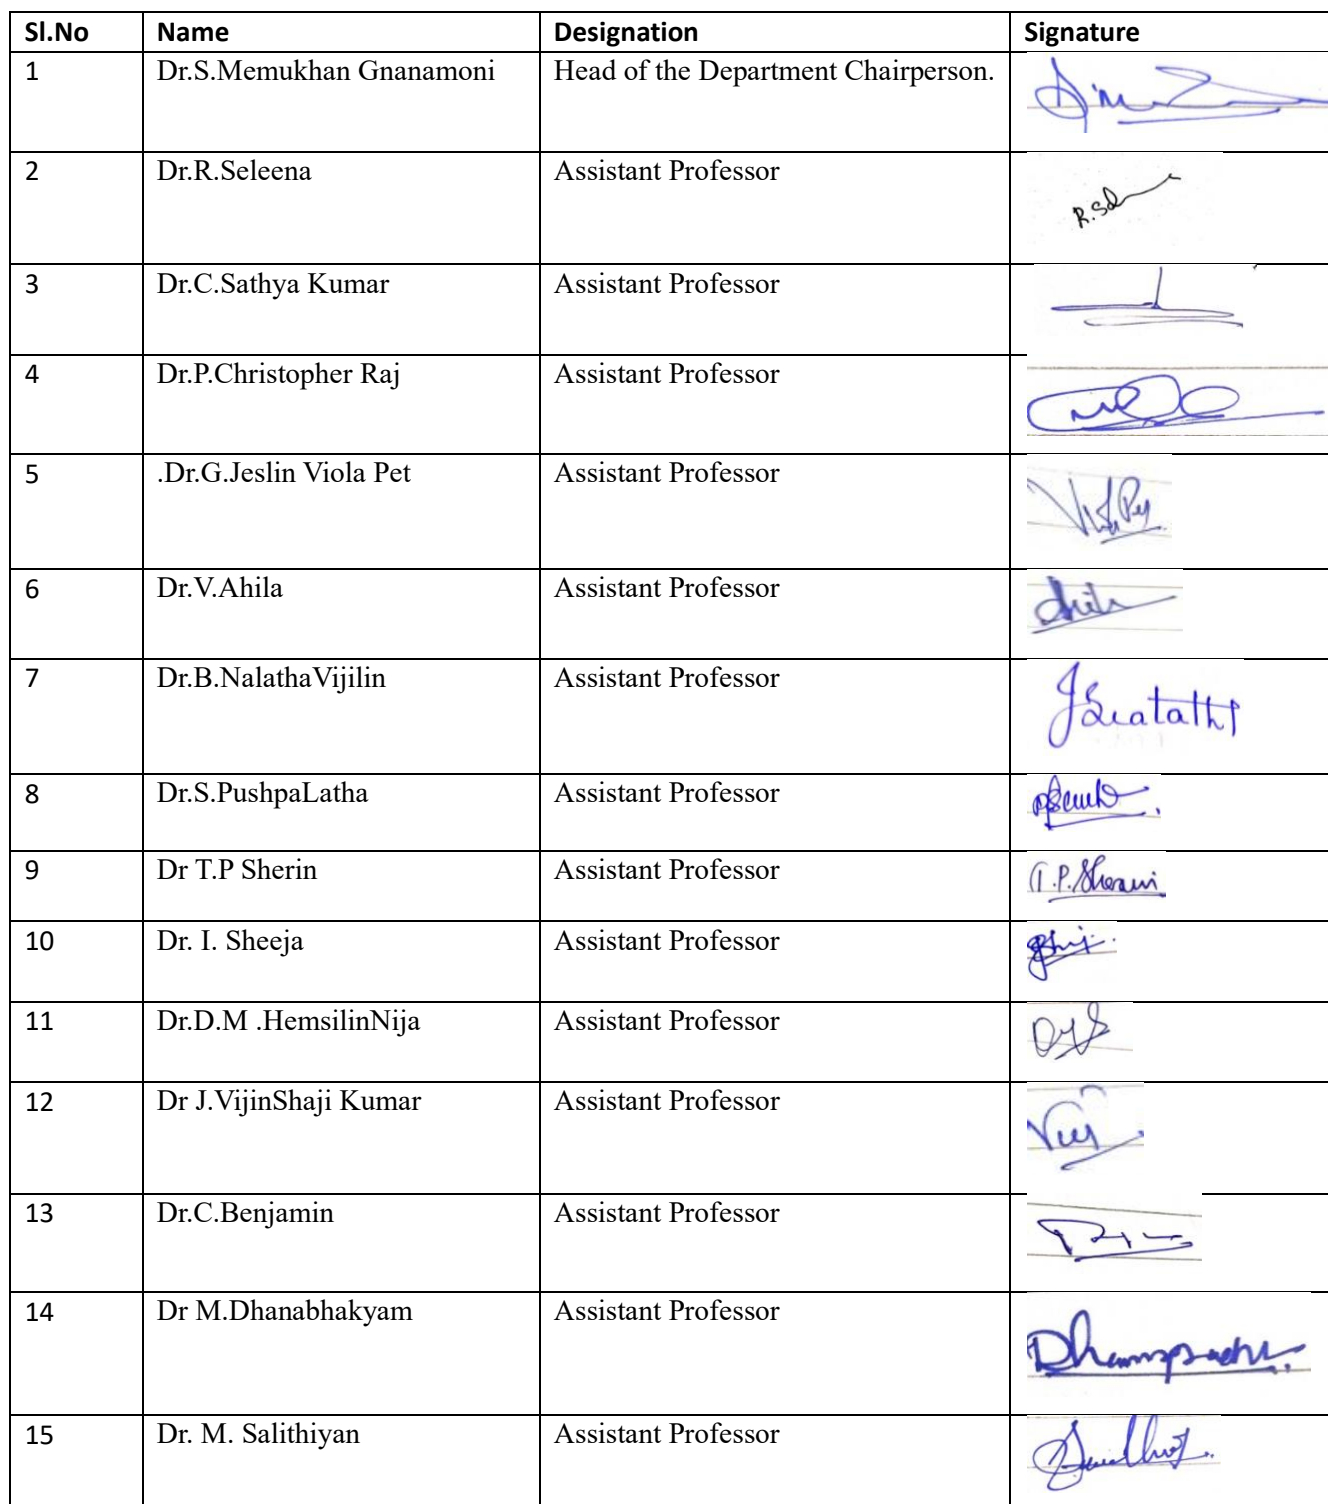 Sl.No Name Designation Signature
1 Dr.S.Memukhan Gnanamoni Head of the Department Chairperson.
2 Dr.R.Seleena Assistant Professor
3 Dr.C.Sathya Kumar Assistant Professor
4 Dr.P.Christopher Raj Assistant Professor
5 .Dr.G.Jeslin Viola Pet Assistant Professor
6 Dr.V.Ahila Assistant Professor
7 Dr.B.NalathaVijilin Assistant Professor
8 Dr.S.PushpaLatha Assistant Professor
9 Dr T.P Sherin Assistant Professor T.P.Sherin
10 Dr. I. Sheeja Assistant Professor
11 Dr.D.M .HemsilinNija Assistant Professor
12 Dr J.VijinShaji Kumar Assistant Professor
13 Dr.C.Benjamin Assistant Professor
14 Dr M.Dhanabhakyam Assistant Professor
15 Dr. M. Salithiyan Assistant Professor